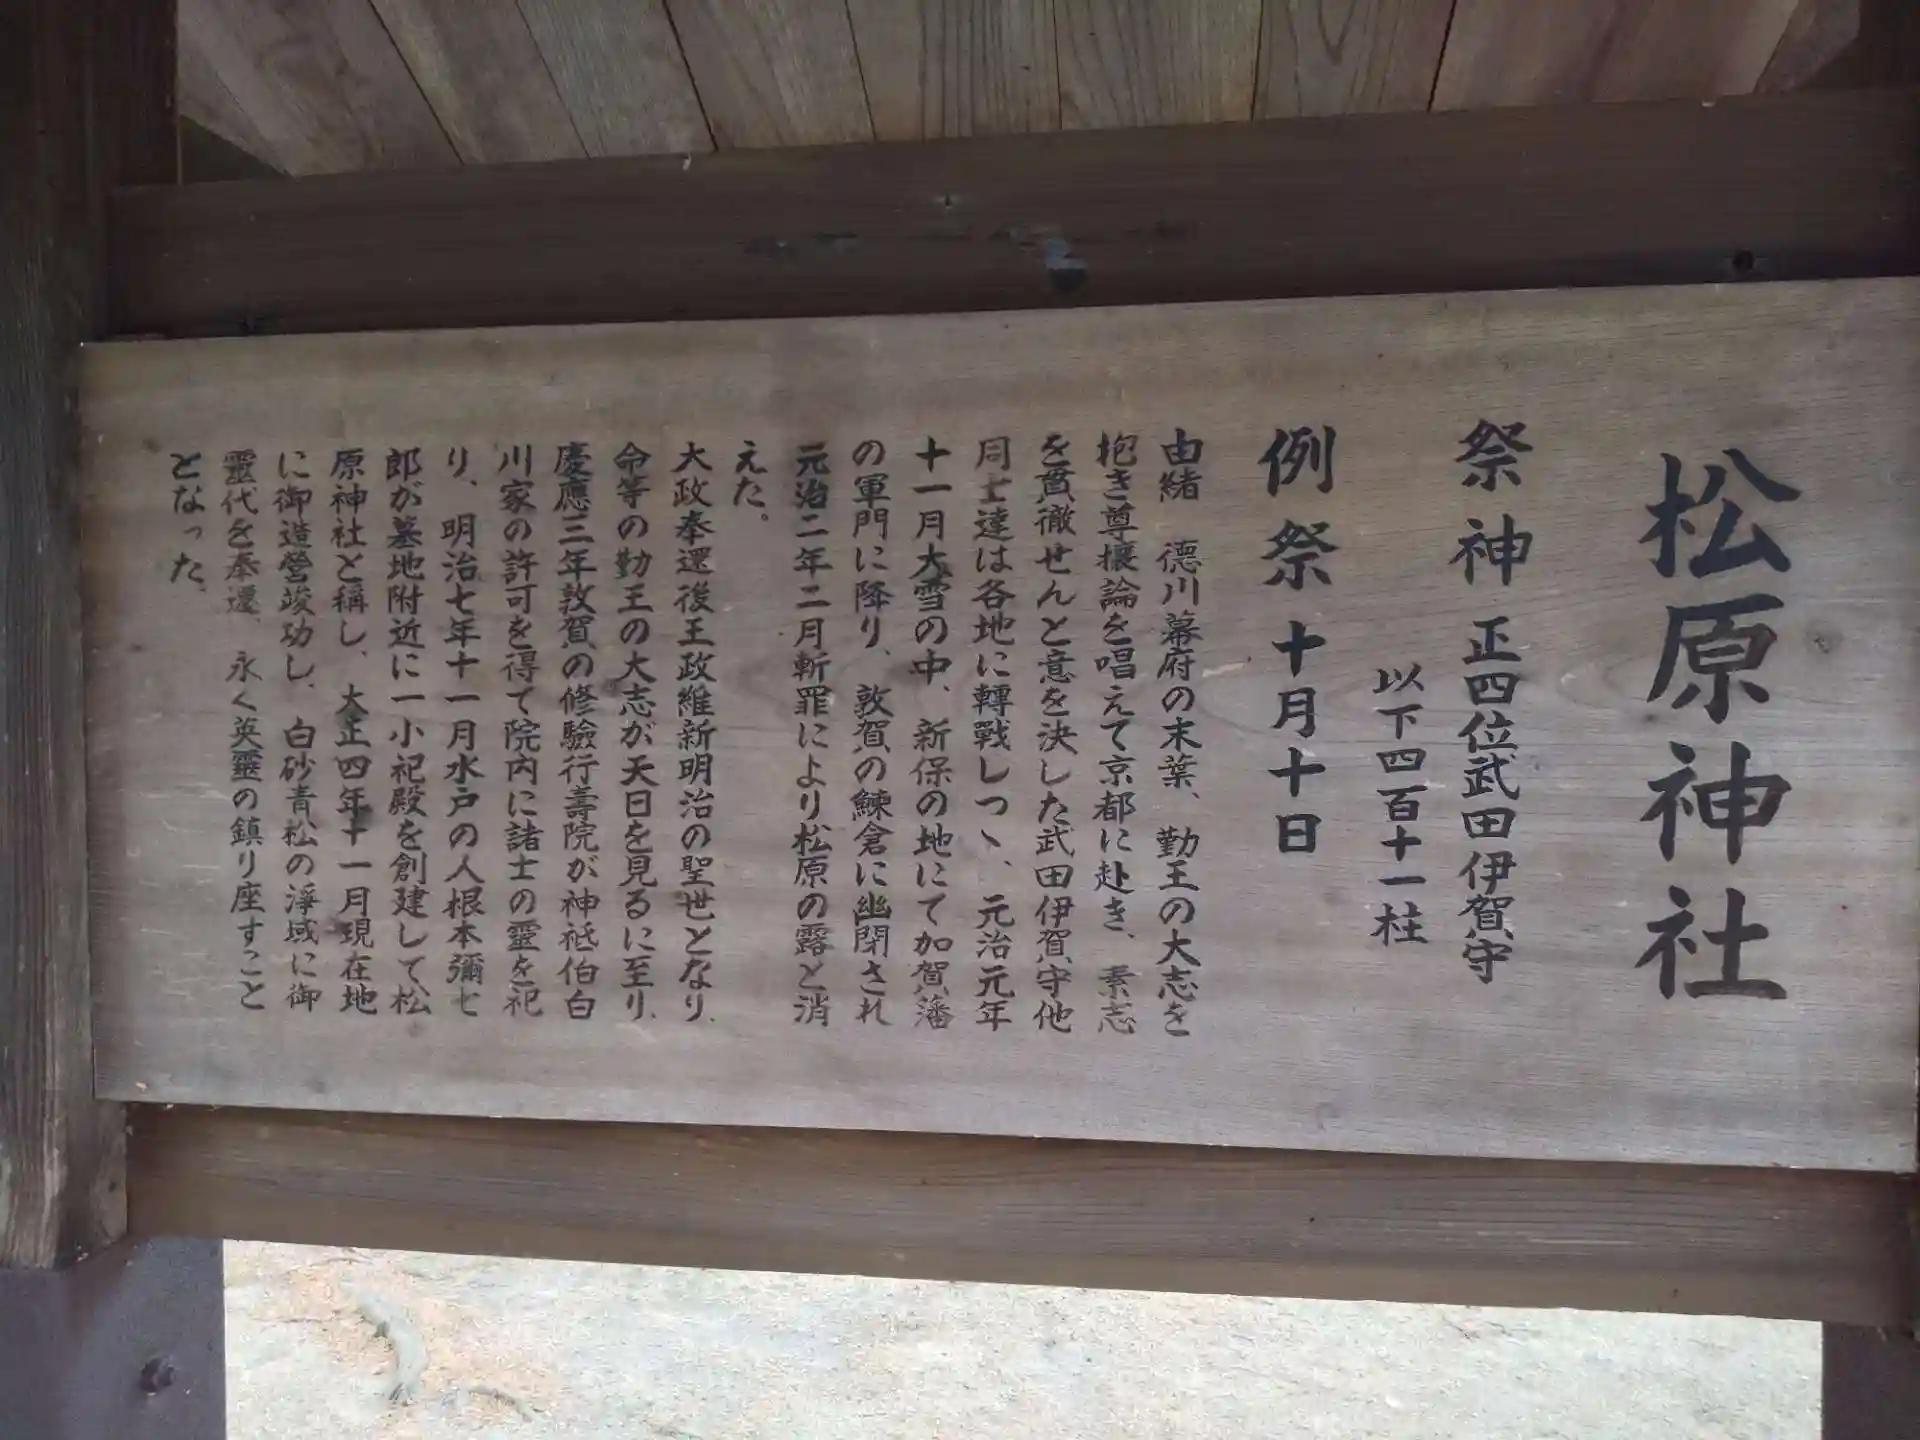 松原神社
祭神 正四位武田伊賀守
以下四百十一柱
例祭 十月十日
由緒 徳川幕府の末葉、勤王の大志を
抱き尊攘論を唱えて京都に赴き、素志
を貫徹せんと意を決した武田伊賀守他
同士達は各地に轉戰しつゝ、元治元年
十一月大雪の中、新保の地にて加賀藩
の軍門に降り、敦賀の鰊倉に幽閉され
元治二年二月斬罪により松原の露と消
えた。
大政奉還後王政維新明治の聖世となり、
命等の勤王の大志が天日を見るに至り、
慶應三年敦賀の修驗行壽院が神祗伯白
川家の許可を得て院内に諸士の靈を祀
り、明治七年十一月水戸の人根本彌七
郎が墓地附近に一小祀殿を創建して松
原神社と稱し、大正四年十一月現在地
に御造營竣功し、白砂青松の淨域に御
靈代を奉遷、永く英靈の鎮り座すこと
となった。